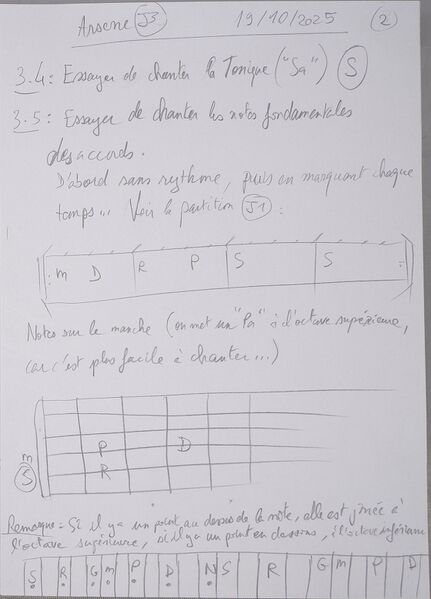 Arsene J3 19/10/2025 2
3.4 : Essayer de chanter la Tonique ("Sa") S
3.5 : Essayer de chanter les notes fondamentales
des accords.
D'abord sans rythme, puis en marquant chaque
temps... Voir la partition J1 :
m D R P S S
Notes sur le manche (on met un "Pa" à l'octave supérieure,
car c'est plus facile à chanter...)
P D
m
S R
Remarque = Si il y a un point au dessus de la note, elle est jouée à
l'octave supérieure, si il y a un point en dessous, à l'octave inférieure
S R G m P D N S R G m P D